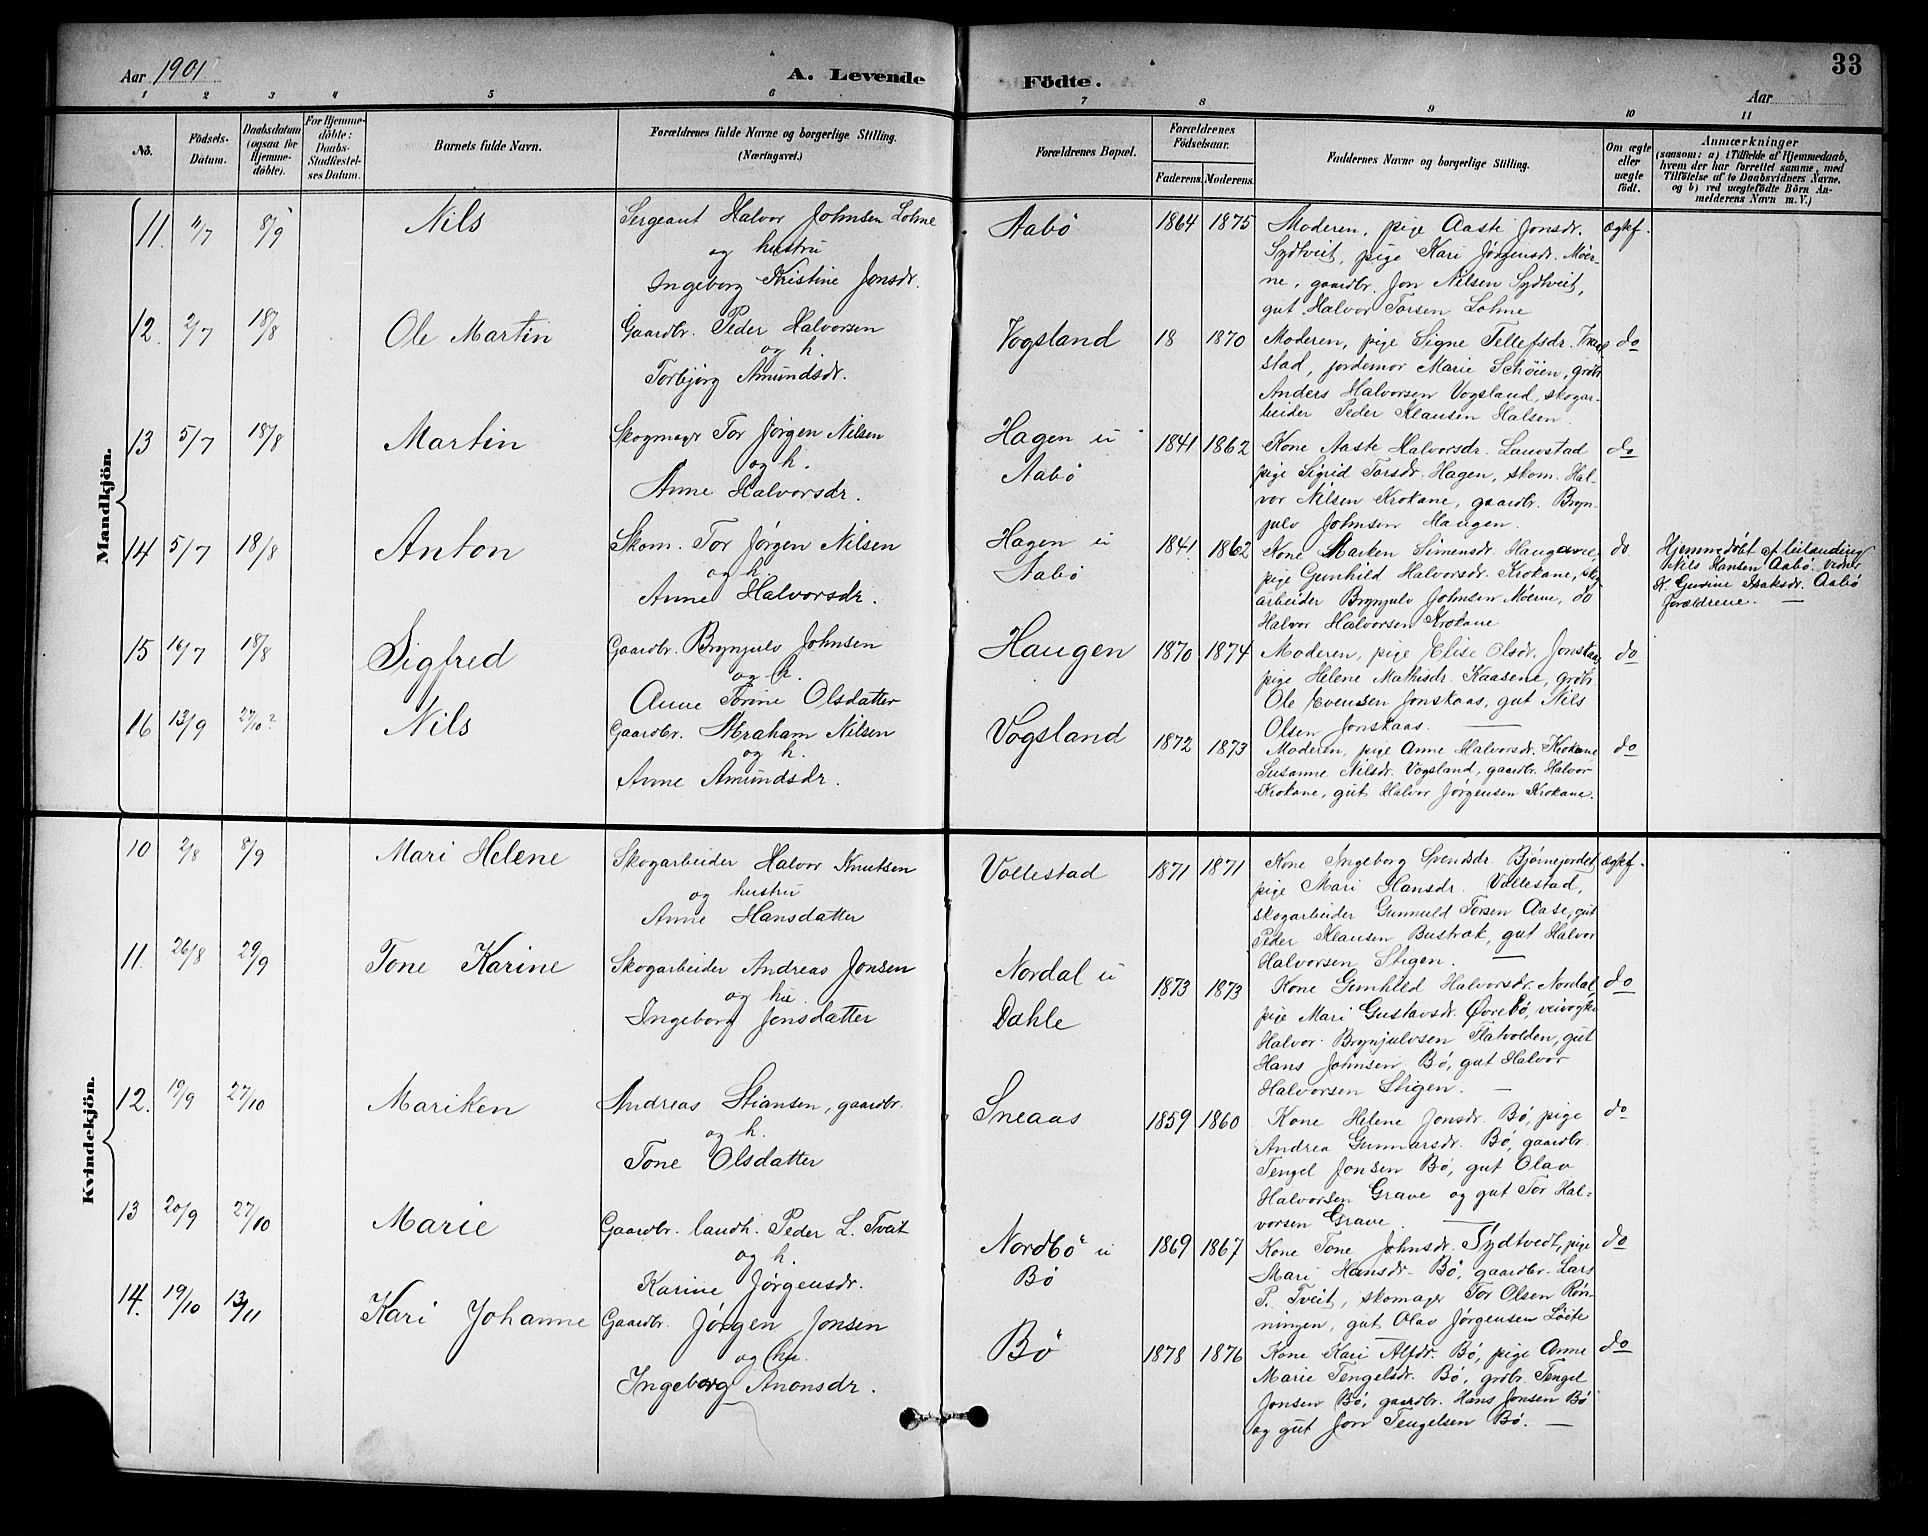 Aar 1901
A. Levende Födte.
33
Aar
1 2 3 4 5 6 7 8 9 10 11
No.
Födsels-Datum.
Daabsdatum (ogsaa for Hjemme-döbte).
For Hjemme-döbte: Daabs-Stadfæstel-ses Datum.
Barnets fulde Navn.
Forældrenes fulde Navne og borgerlige Stilling. (Næringsvei.)
Forældrenes Bopæl.
Forældrenes Födselsaar.
Faderens. Moderens.
Faddernes Navne og borgerlige Stilling.
Om ægte eller uægte födt.
Anmærkninger
(saasom: a) i Tilfælde af Hjemmedaab,
hvem der har forrettet samme, med
Tilföielse af to Daabsvidners Navne,
og b) ved uægtefödte Börn An-
melderens Navn m. V.)
Mandkjön.
11. 8/9 Nils
Sergeant Halvor Johnsen Lohne
og hustru
Ingeborg Kristine Jonsdr.
Aabö 1864 1875
Moderen, pige Aaste Jonsdr.
Sydtveit, pige Kari Jörgensdr. Moer-
ne, gaardbr. Jon Nilsen Sydtveit,
gut Halvor Torsen Lohne
ægtef.
12. 2/7 18/8 Ole Martin
Gaardbr. Peder Halvorsen
og h.
Torbjörg Amundsdr.
Vogsland 18 1870
Moderen, pige Signe Tellefsdr.
stad, jordemor Marie Schöien, grdbr.
Anders Halvorsen Vogsland, skogar-
beider Peder Klausen Halsen.
do
13 5/7 18/8 Martin
Skogmagr Tor Jörgen Nilsen
og h.
Anne Halvorsdr.
Hagen u
Aabö 1841 1862
Kone Aaste Halvorsdr. Lauvstad
pige Sigrid Torsdr. Hagen, skom. Hal-
vor Nilsen Krokane, gaardbr. Bryn-
julv Johnsen Haugen.
do
14 5/7 18/8 Anton
Skom. Tor Jörgen Nilsen
og h.
Anne Halvorsdr.
Hagen u
Aabö 1841 1862
Kone Marken Simensdr. Haugane
pige Gunhild Halvorsdr. Krokane, skog
arbeider Brynjulv Johnsen Moerne, do
Halvor Halvorsen Krokane
do
Hjemmedöbt af
Nils Hansen Aabö. vidner
K. Gurine Isaksdr. Aabö
forældrene. —
15 16/7 18/8 Sigfred
Gaardbr. Brynjulv Johnsen
og h.
Anne Torine Olsdatter
Haugen 1870 1874
Moderen, pige Elise Olsdr. Jonskaas
pige Helene Mathisdr. Kaasene, grdbr.
Ole Evensen Jonskaas, gut Nils
Olsen Jonskaas. —
do
16 13/9 27/10? Nils
Gaardbr. Abraham Nilsen
og h.
Anne Amundsdr.
Vogsland 1872 1873
Moderen, pige Anne Halvorsdr. Krokane
Susanne Nilsdr. Vogsland, gaardbr. Halvor
Krokane, gut Halvor Jörgensen Krokane.
do
Kvindekjön.
10 2/8 8/9 Mari Helene
Skogarbeider Halvor Knutsen
og hustru
Anne Hansdatter
Vollestad 1871 1871
Kone Ingeborg Svensdr. Bjørnejordet
pige Mari Hansdr. Vollestad,
skogarbeider Gunnuld Torsen Aase, gut
Peder Klausen Bustrak, gut Halvor
Halvorsen Stigen. —
ægtef.
11. 26/8 29/9 Tone Karine
Skogarbeider Andreas Jonsen
og hu.
Ingeborg Jonsdatter
Nordal u
Dahle 1873 1873
Kone Gunhild Halvorsdr. Nordal
pige Mari Gustavsdr. Øvrebø, veivogter
Halvor Brynjulvsen Flatvolden, gut
Hans Johnsen Bø, gut Halvor
Halvorsen Stigen. —
do
12. 19/9 27/10 Mariken
Andreas Stiansen, gaardbr.
og h.
Tone Olsdatter
Sneaas 1859 1860
Kone Helene Jonsdr. Bø, pige
Andrea Gunnarsdr. Bø, gaardbr.
Tengel Jonsen Bø, gut Olav
Halvorsen Grave og gut Tor Hal-
vorsen Grave. —
do
13 20/9 27/10 Marie
Gaardbr. landh. Peder L. Tveit
og h.
Karine Jørgensdr.
Nordbö u
Bö 1869 1867
Kone Tone Johnsdr. Sydtvedt, pige
Mari Hansdr. Bø, gaardbr. Lars
P. Tveit, skomager Tor Olsen Røn-
ningen, gut Olav Jørgensen Löite
do
14. 19/10 13/11 Kari Johanne
Gaardbr. Jörgen Jonsen
og hu.
Ingeborg Anonsdr.
Bö 1878 1876
Kone Kari Alfdr. Bø, pige Anne
Marie Tengelsdr. Bø, grdbr. Tengel
Jonsen Bø, gaardbr. Hans Jonsen Bø
og gut Jon Tengelsen Bø. —
do